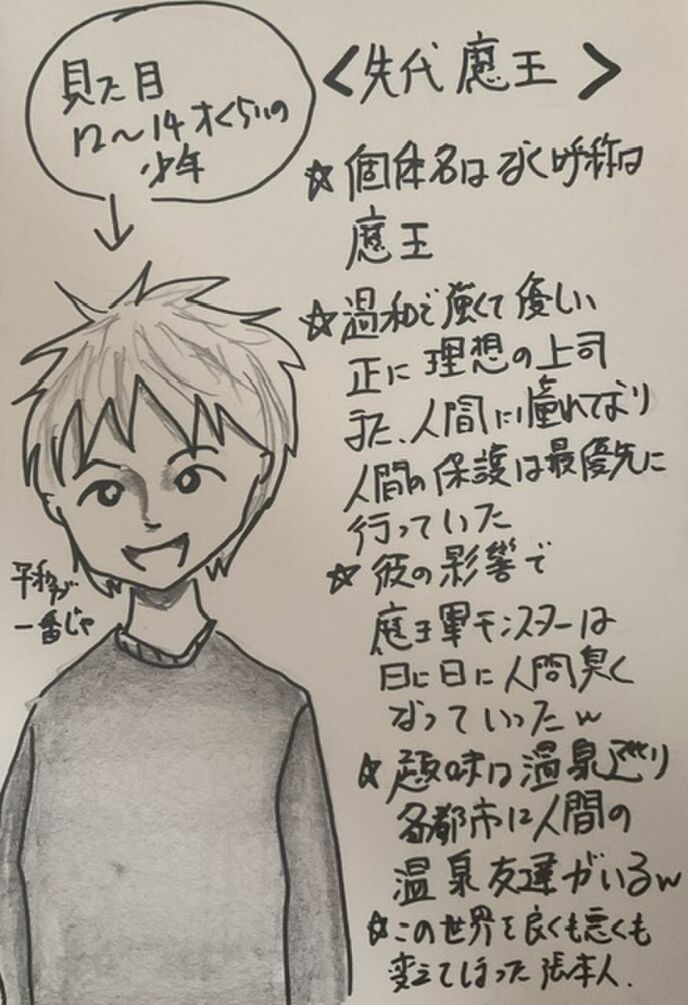 見た目
12〜14才くらいの
少年
<先代魔王>
☆個体名はなく呼称は
魔王
☆温和で強くて優しい
正に理想の上司
また、人間に憧れており
人間の保護は最優先に
行っていた
☆彼の影響で
魔王軍モンスターは
日に日に人間臭く
なっていったw
☆趣味は温泉巡り
各都市に人間の
温泉友達がいるw
☆この世界を良くも悪くも
変えてしまった張本人.
平和が
一番じゃ